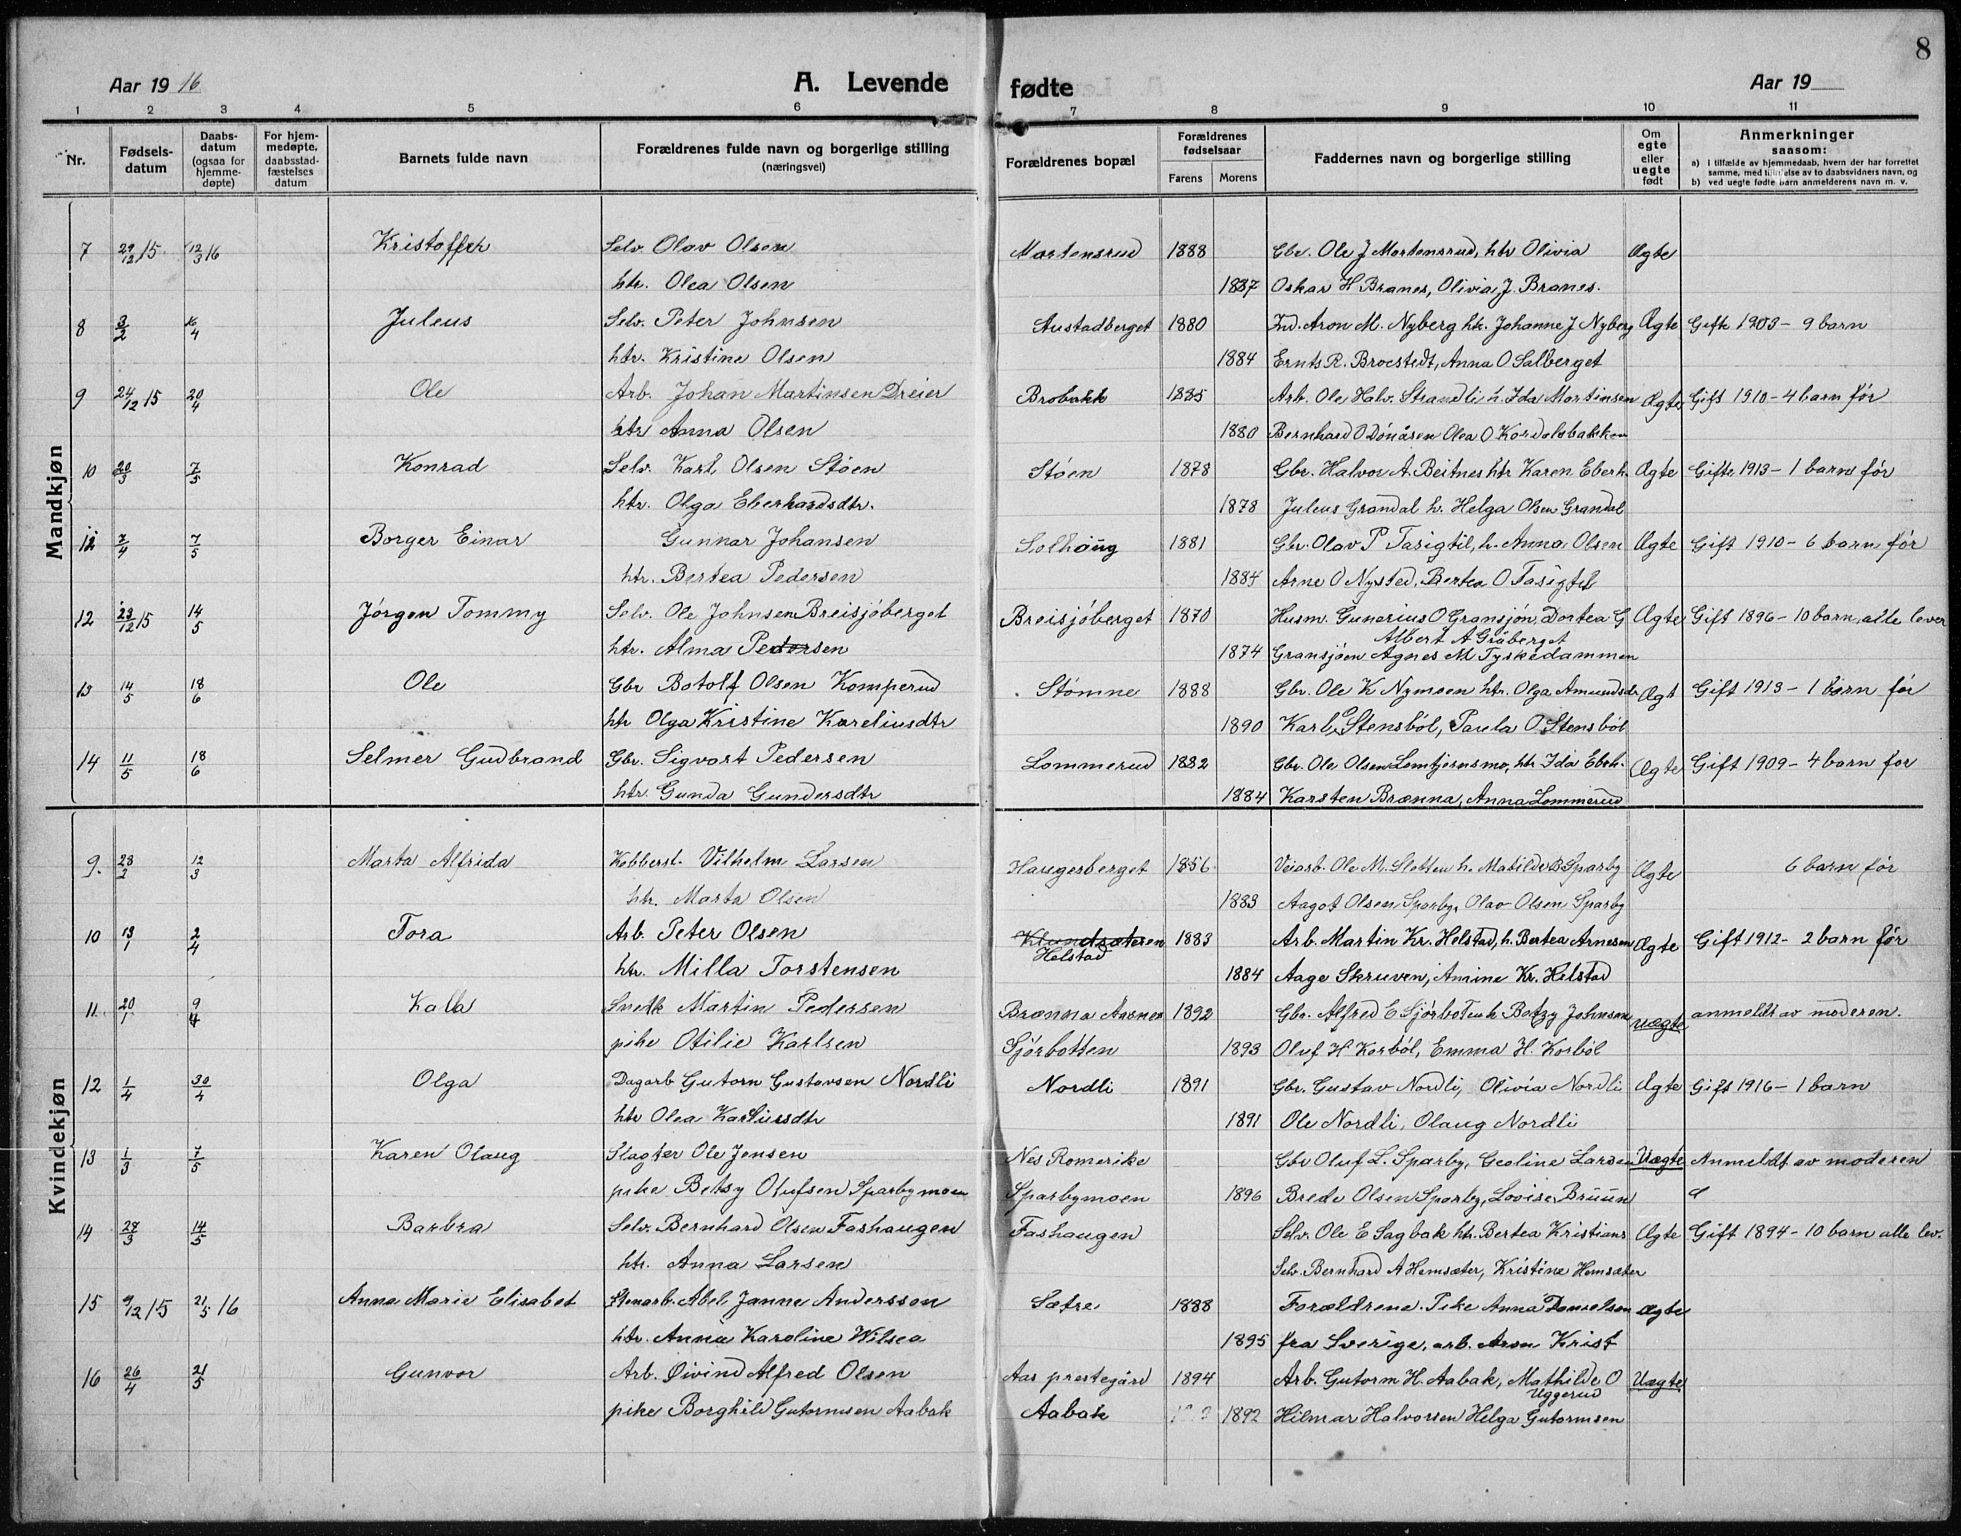 Aar 1916
A. Levende
fødte
Aar 19
8
1 2 3 4 5 6 7 8 9 10 11
Nr.
Fødsels-
datum
Daabs-
datum
(ogsaa for
hjemme-
døpte)
For hjem-
medøpte,
daabsstad-
fæstelses
datum
Barnets fulde navn
Forældrenes fulde navn og borgerlige stilling
(næringsvei)
Forældrenes bopæl
Forældrenes
fødselsaar
Farens Morens
Faddernes navn og borgerlige stilling
Om
egte
eller
uegte
født
Anmerkninger
saasom:
a) I tilfælde av hjemmedaab, hvem der har forrettet
samme, med tilføielse av to daabsvidners navn, og
b) ved uegte fødte barn anmelderens navn m. v.
Mandkjøn
7 29/12 15 12/3 16 Kristoffer Selv. Olav Olsen Mortensrud 1888 Gbr. Ole J Mortensrud, htr Olivia Ægte
htr. Olea Olsen 1887 Oskar H Branes, Olivia J. Branes.
8 3/2 16/4 Juleus Selv. Peter Johnsen Austadberget 1880 Ind. Aron M. Nyberg htr. Johanne J Nyberg Ægte Gifte 1903 - 9 barn
htr. Kristine Olsen 1884 Ernts R. Brocstedt, Anna O Salberget
9 24/12 15 20/4 Ole Arb. Johan Martinsen Dreier Brobakk 1885 Arb. Ole Halv. Strandli h. Ida Martinsen Ægte Gift 1910 - 4 barn før
htr Anna Olsen 1880 Bernhard O Dönåsen Olea O Kordolsbakken
10 20/3 7/5 Konrad Selv. Karl Olsen Støen Støen 1878 Gbr. Halvor A. Beitnes htr Karen Eberh. Ægte Gifte 1913 - 1 barn før
htr. Olga Eberhardsdtr. 1878 Juleus Grandal h. Helga Olsen Grandal
12 7/4 7/5 Borger Einar Gunnar Johansen Solhaug 1881 Gbr. Olav P Tasigtil, h. Anna Olsen Ægte Gift 1910 - 6 barn før
htr. Bertea Pedersen 1884 Arne O Nysted, Bertea O Tasigtil
12 23/12 15 14/5 Jørgen Tommy Selv. Ole Johnsen Breisjöberget Breisjöberget 1870 Husm. Gunerius O Gransjön, Dortea G Ægte Gift 1896 - 10 barn, alle lever
Albert A Gråberget
htr. Alma Pedersen 1874 Gransjøen Agnes M Tyskedammen
13 14/5 18/6 Ole Gbr Botolf Olsen Komperud Stømne 1888 Gbr. Ole K Nymoen htr. Olga Amundsdr Ægt Gift 1913 - 1 barn før
htr Olga Kristine Kareliusdtr 1890 Karl O Stensböl, Paula O Stensböl
14 11/5 18/6 Selmer Gudbrand Gbr. Sigvart Pedersen Lommerud 1882 Gbr. Ole Olsen Lomtjernsmo, htr Ida Ebeh. Ægte Gift 1909 - 4 barn før
htr. Gunda Gundersdtr 1884 Karsten Brænna, Anna Lommerud
Kvindekjøn
9. 28/2 12/3 Marta Alfrida Kobberst. Vilhelm Larsen Haugerberget 1856 Veiarb. Ole M. Slotten h. Matilde B Sparby Ægte 6 barn før
htr. Marta Olsen 1883 Aagot Olsen Sparby, Olav Olsen Sparby
10 13/1 2/4 Tora Arb. Peter Olsen Klundsæteren 1883 Arb. Martin Kr. Helstad, h. Bertea Arnesen Ægte Gift 1912 - 2 barn før
Helstad
htr. Milla Torstensen 1884 Aage Skruven, Amine Kr. Helstad
11. 20/1 9/4 Kalla Snedk Martin Pedersen Brænna Aasnes 1892 Gbr. Alfred E Sjörboten h Betzy Johnsen uægte anmeldt av moderen.
pike Otilie Karlsen Sjörbotten 1893 Oluf H Korböl, Emma H. Korböl
12 1/4 30/4 Olga Dagarb Gutorm Gustavsen Nordli Nordli 1891 Gbr. Gustav Nordli, Olivia Nordli Ægte Gift 1916 - 1 barn
htr Olea Karliusdtr 1891 Ole Nordli, Olaug Nordli
13 1/3 7/5 Karen Olaug Slagter Ole Jensen Nes Romerike Gbr Oluf L. Sparby, Geoline Larsen Uægte Anmeldt av moderen
pike Betsy Olufsen Sparbymoen Sparbymoen 1896 Brede Olsen Sparby, Lovise Bruun
14 28/3 14/5 Barbra Selv. Bernhard Olsen Fashaugen Fashaugen Selv. Ole E Sagbak htr. Bertea Kristians Ægte Gift 1894 - 10 barn alle lev.
htr. Anna Larsen Selv. Bernhard A Hemsæter, Kristine Hemsæter
15 9/12 15 21/5 16 Anna Marie Elisabet Stenarb. Abel Janne Andersson Sætre 1888 Forældrene. Pike Anna Danielsen Ægte
htr. Anna Karoline Wilsea 1895 fra Sverige, arb. Aron Krist
16 26/4 21/5 Gunvor Arb. Øivind Alfred Olsen Aas prestegård 1894 Arb. Gutorm H. Aabak, Mathilde O Uægte
Uggerud
pike Borghild Gutormsen Aabak Aabak 1892 Hilmar Halvorsen Helga Gutormsen